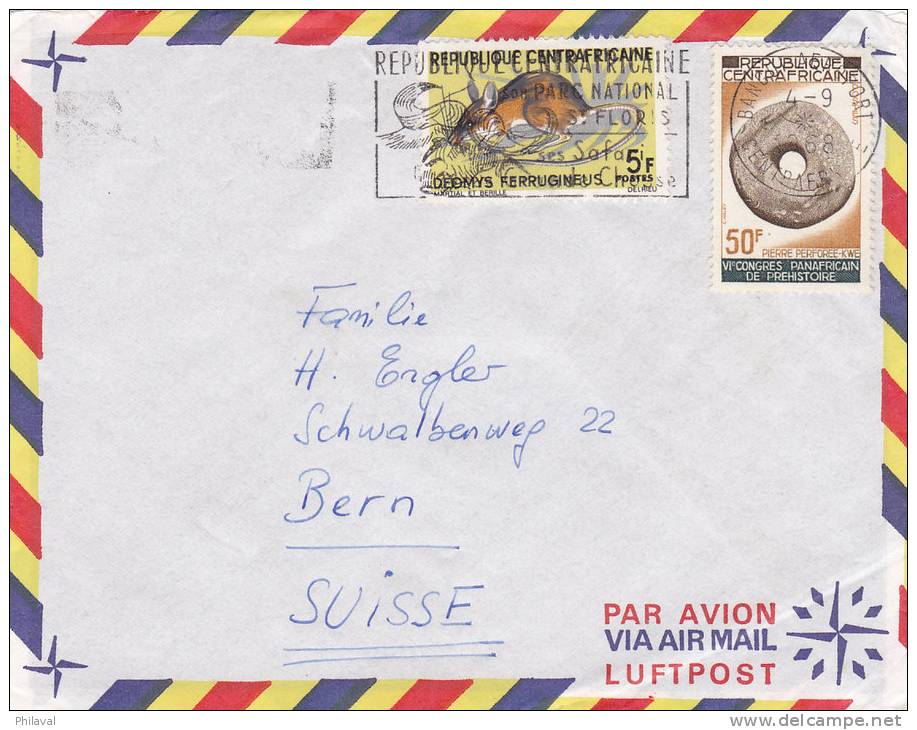 REPUBLIQUE CENTRAFRICAINE
son PARC NATIONAL
ST FLORIS
ses Safari
Chasse
REPUBLIQUE CENTRAFRICAINE
5F
POSTES
DEOMYS FERRUGINEUS
MARTIAL ET BERILLE
DELRIEU
REPUBLIQUE
CENTRAFRICAINE
4-9
50F
PIERRE PERFOREE-KWE
VIe CONGRES PANAFRICAIN
DE PREHISTOIRE
Familie
H. Engler
Schwalbenweg 22
Bern
SUISSE
PAR AVION
VIA AIR MAIL
LUFTPOST
Philaval
www.delcampe.net